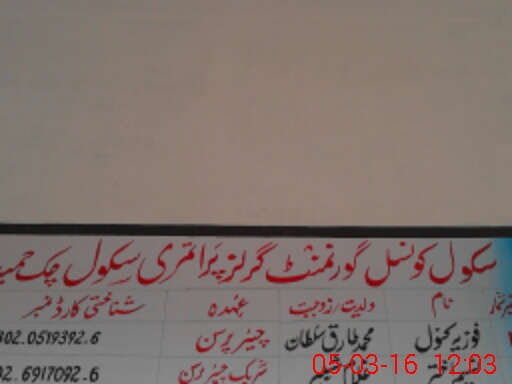 سکول کونسل گورنمنٹ گرلز پرائمری سکول چک
نام ولدیت/زوجیت عہدہ شناختی کارڈ نمبر
فوزیہ کنول محمد طارق سلطان چیئر پرسن 302.0519392.6
شریک چیئر پرسن 02.6917092.6
05-03-16 12:03